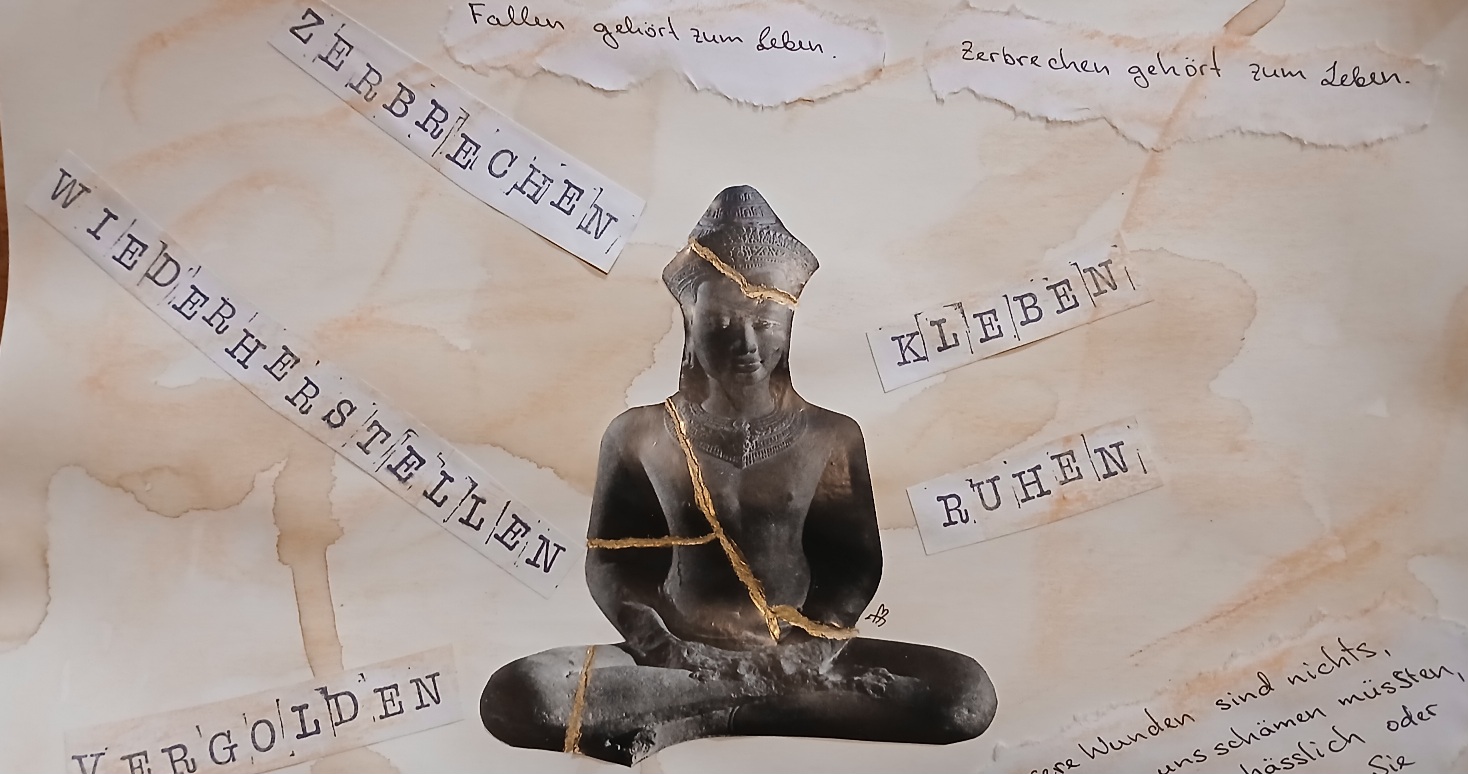 Fallen gehört zum Leben.
Zerbrechen gehört zum Leben.
ZERBRECHEN
WIEDERHERSTELLEN
KLEBEN
RUHEN
VERGOLDEN
Wunden sind nichts,
uns schämen müssten,
hässlich oder
Sie